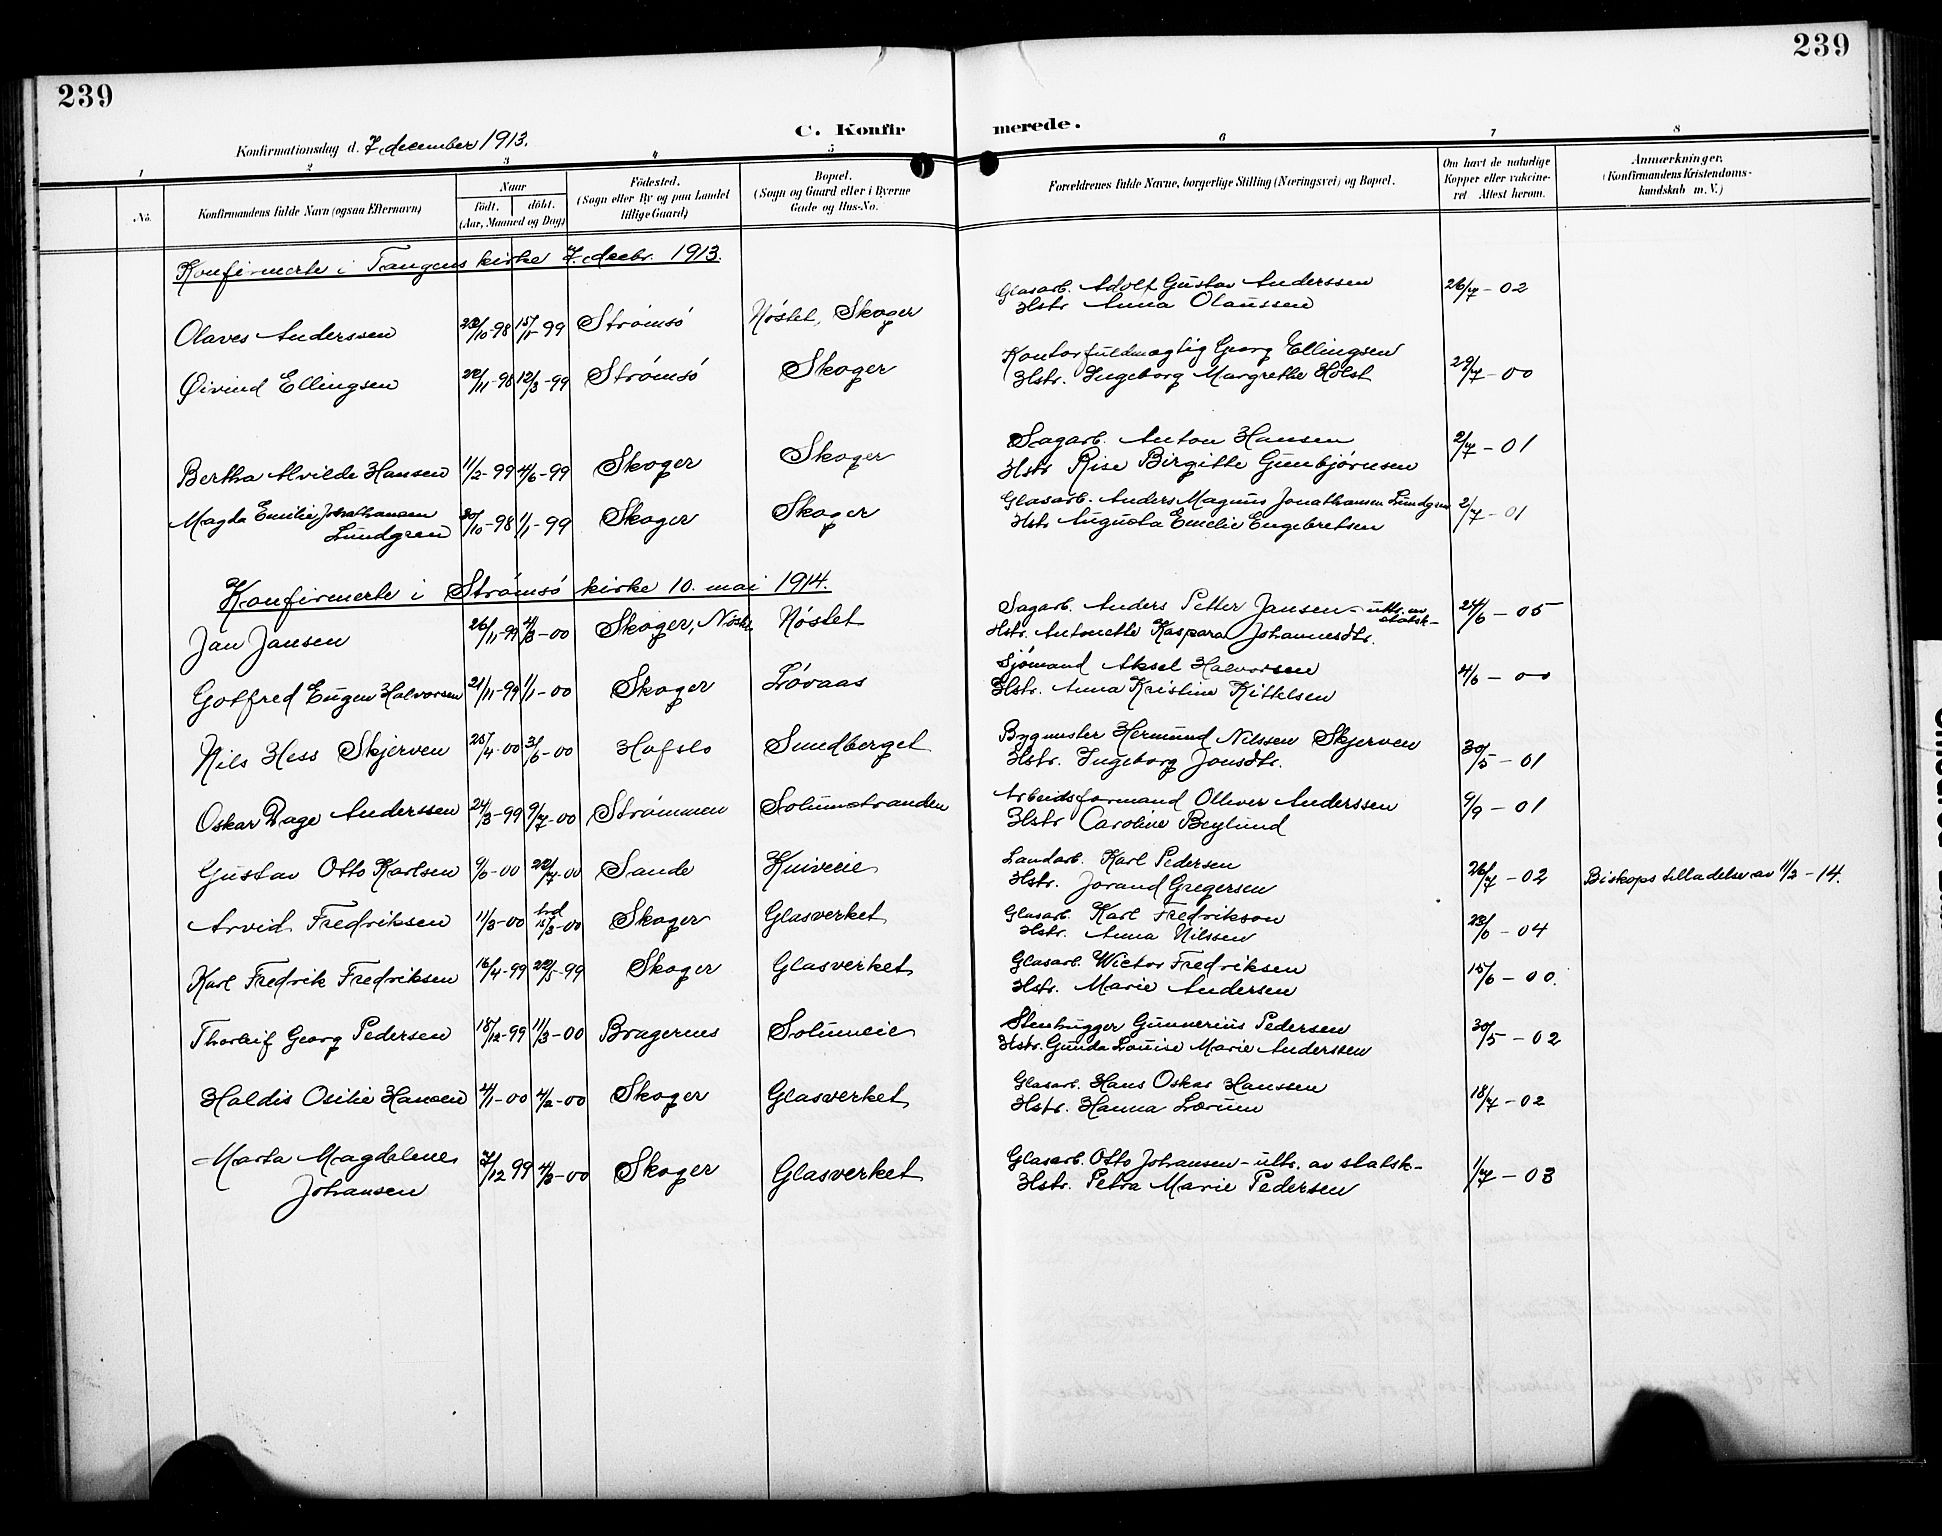 239
239
C. Konfirmerede.
Konfirmationsdag d. 7 december 1913.
1 2 3 4 5 6 7 8
No.
Konfirmandens fulde Navn (ogsaa Efternavn)
Naar
født. døbt.
(Aar, Maaned og Dag)
Fødested.
(Sogn eller By og paa Landet
tillige Gaard)
Bopæl.
(Sogn og Gaard eller i Byerne
Gade og Hus-No.
Forældrenes fulde Navne, borgerlige Stilling (Næringsvei) og Bopæl.
Om havt de naturlige
Kopper eller vakcine-
ret Attest herom.
Anmærkninger.
(Konfirmandens Kristendoms-
kundskab m. V.)
Konfirmerte i Tangens kirke 7. decbr. 1913.
Glasarb. Adolf Gustav Anderssen 26/7 - 02
Hstr Anna Olaussen
Olaves Anderssen /10-98 15/1-99 Strømsø Nøstet, Skoger
Kontorfuldmægtig Georg Ellingsen 29/7 - 00
Hstr. Ingeborg Margrethe Holst
Øivind Ellingsen 22/11-98 12/3-99 Strømsø Skoger
Sagarb. Anton Hansen 2/7 - 01
Hstr Rise Birgitte Gunbjørnsen
Bertha Alvilde Hansen 11/2-99 4/6-99 Skoger Skoger
Glasarb. Anders Magnus Jonathansen Lundgren 2/7 - 01
Hstr Augusta Emelie Engebretsen
Magda Emilie Jonathansen 30/10-98 1/1-99 Skoger Skoger
Lundgren
Konfirmerte i Strømsø kirke 10. mai 1914.
Sagarb. Anders Petter Jansen - uttr. av statsk- 24/6 - 05
Hstr. Antonette Kaspara Johannesdtr.
Jan Jansen 26/11-99 4/3-00 Skoger, Nøstet Nøstet
Sjömand Aksel Halvorsen 4/6 - 00
Hstr. Anna Kristine Kittelsen
Gotfred Eugen Halvorsen 21/11-99 1/1-00 Skoger Løvaas
Bygmester Hermund Nilssen Skjerven 30/5 - 01
Hstr. Ingeborg Jonsdtr.
Nils Hess Skjerven 25/4-00 3/6-00 Hafslo Sundberget
Arbeidsformand Olliver Anderssen 9/9 - 01
Hstr Caroline Beylund
Oskar Dage Anderssen 24/3-99 9/7-00 Strømmen Solumstranden
Landarb. Karl Pedersen 26/7 - 02 Biskops tilladelse av 11/2 - 14.
Hstr. Jorand Gregersen
Gustav Otto Karlsen 9/6-00 22/7-00 Sande Kniveeie
Glasarb. Karl Fredrikson 23/6 - 04
Hstr. Anna Nilssen
Arvid Fredriksen 11/3-00 15/3-00 Skoger Glasverket
Glasarb. Wictor Fredriksen 15/6 - 00.
Hstr. Marie Andersen
Karl Fredrik Fredriksen 16/4-99 22/5-99 Skoger Glasverket
Stenhugger Gunnerius Pedersen 30/5 - 02
Hstr. Gunda Louise Marie Anderssen
Thorleif Georg Pedersen 18/12-99 11/3-00 Bragernes Solumeie
Glasarb. Hans Oskar Hanssen 18/7 - 02
Hstr. Hanna Lærum
Haldis Osilie Hansen 2/1-00 4/2-00 Skoger Glasverket
Glasarb. Otto Johansen - uttr. av statsk- 1/7 - 03
Hstr. Petra Marie Pedersen
Marta Magdalene 7/12 99 4/3-00 Skoger Glasverket
Johansen